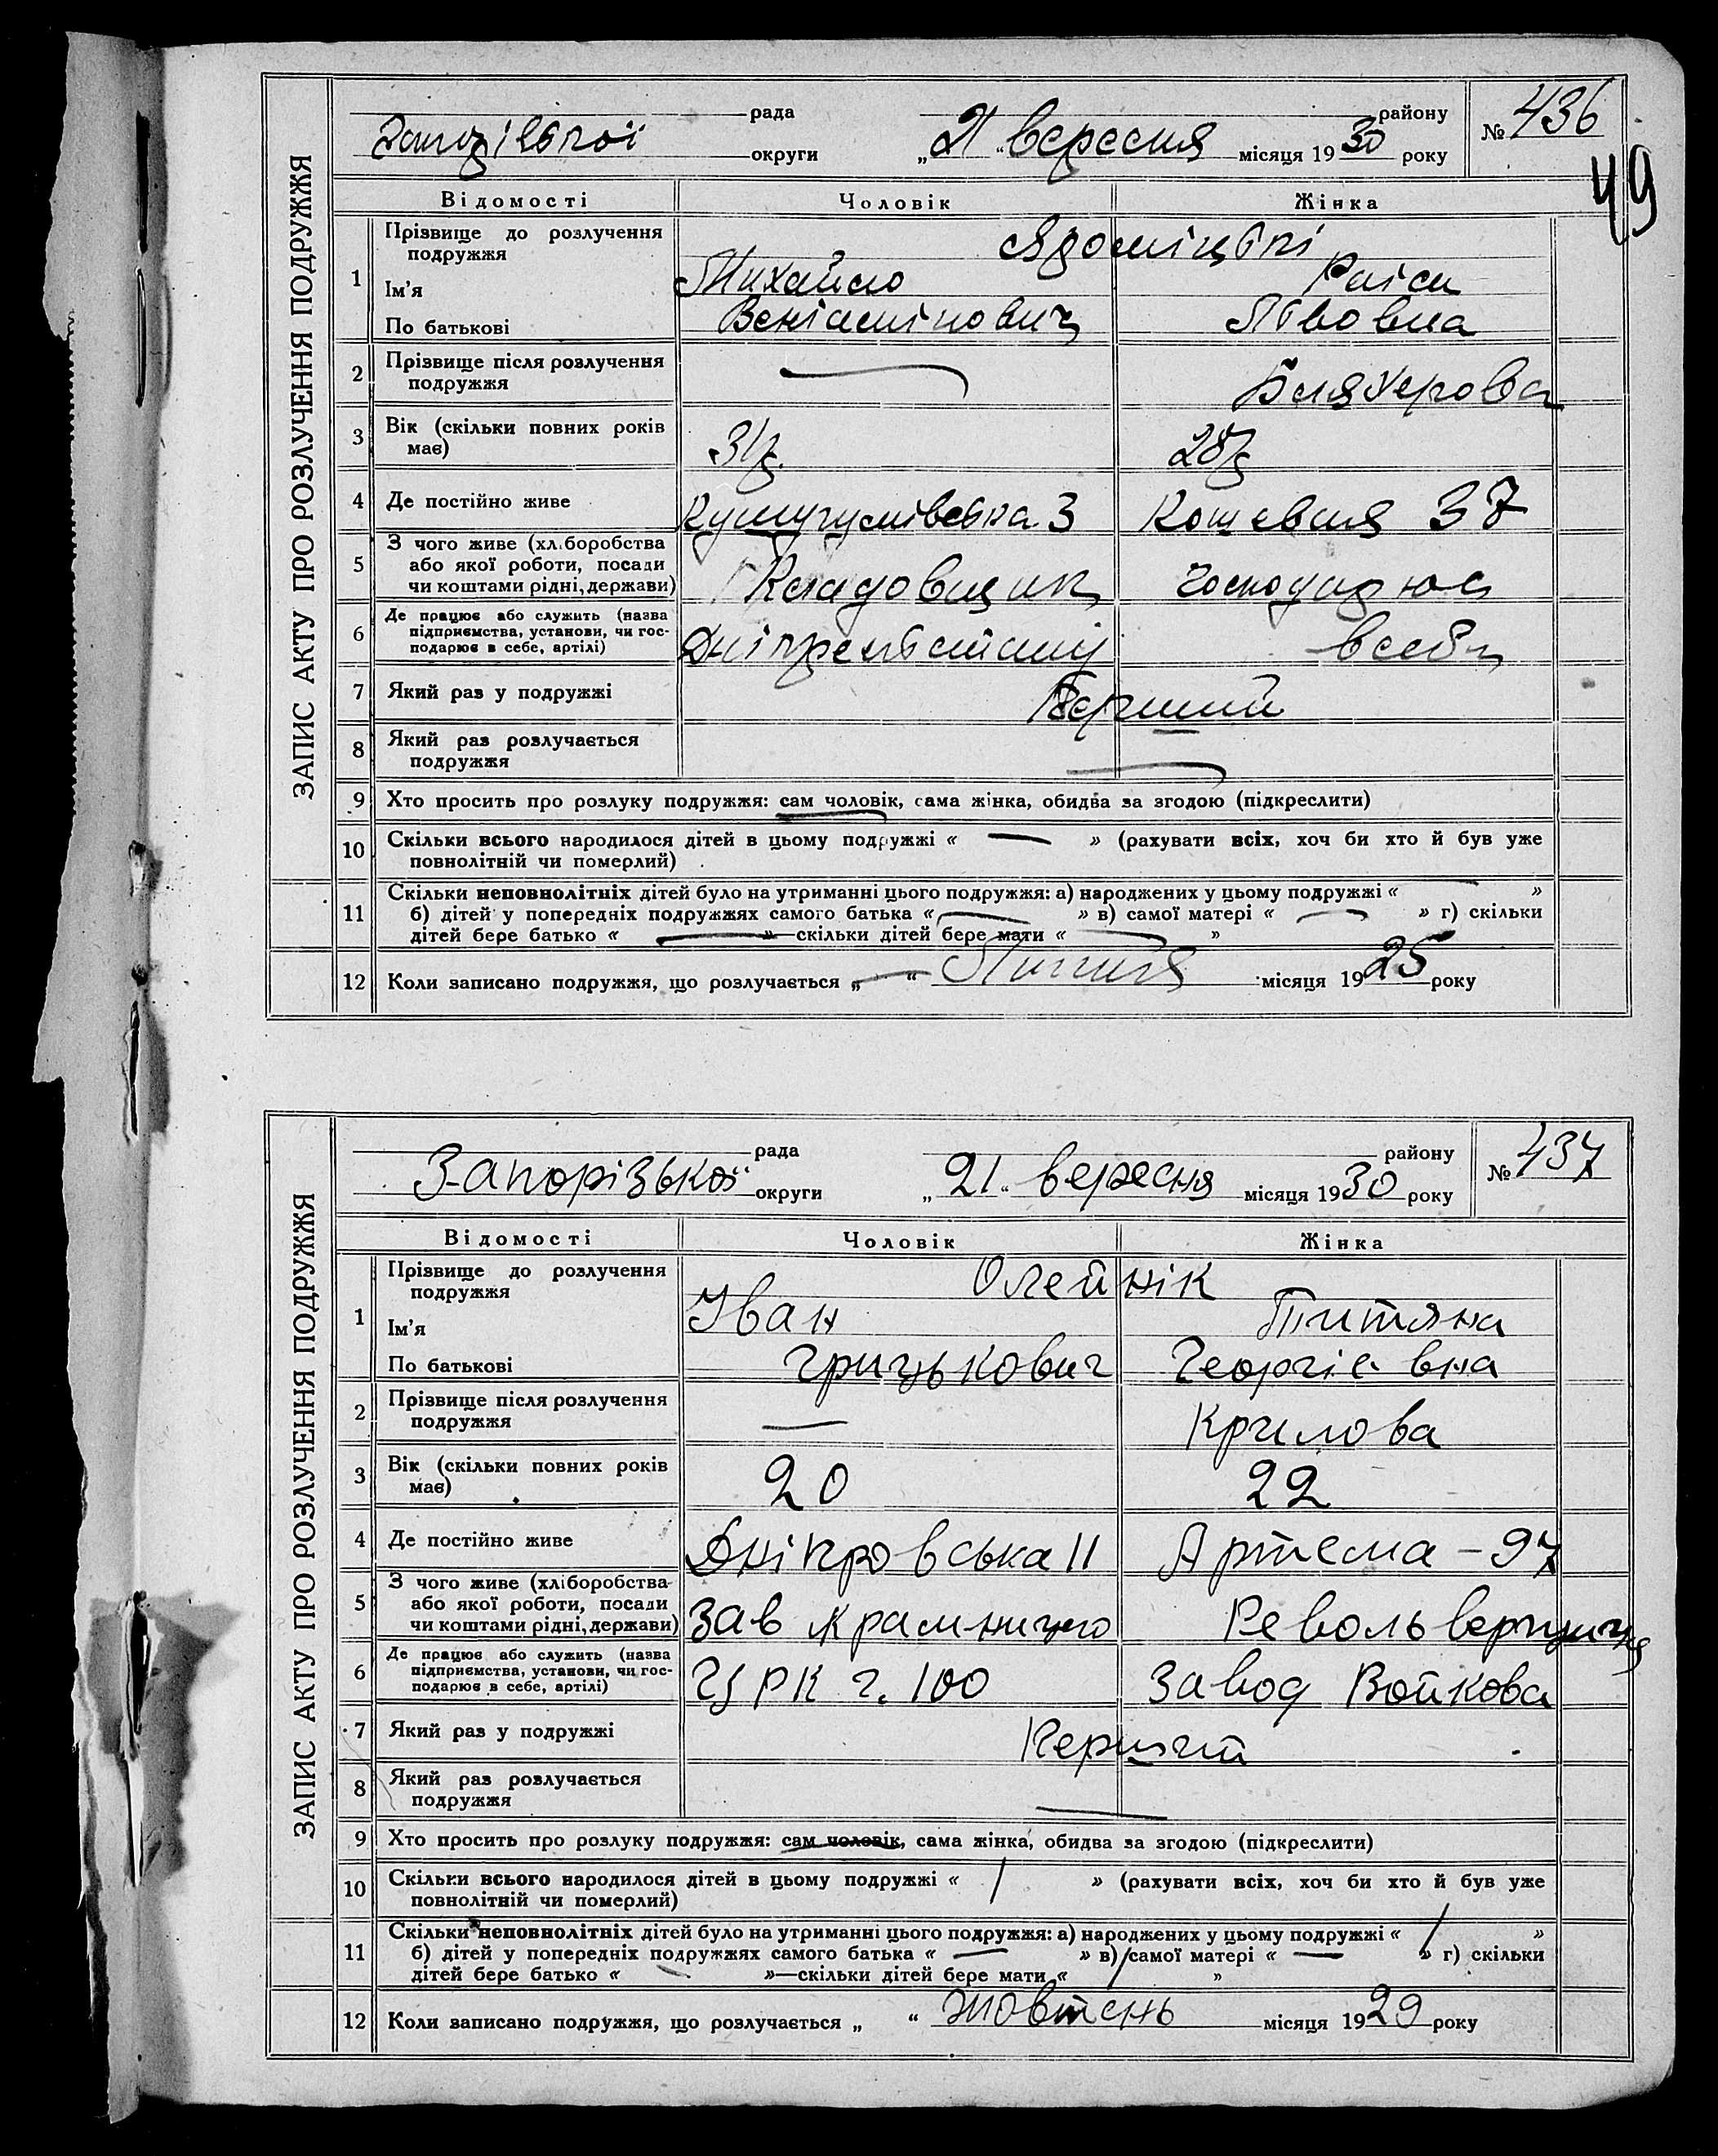 ЗАПИС АКТУ ПРО РОЗЛУЧЕННЯ ПОДРУЖЖЯ
рада району
округи „21“ вересня місяця 1930 року
№ 436
49
Відомості Чоловік Жінка
1 Прізвище до розлучення
подружжя
Ім'я Михайло Раїса
По батькові Веніамінович Львовна
2 Прізвище після розлучення
подружжя — Бляхерова
3 Вік (скільки повних років
має) 31р. 28р
4 Де постійно живе 3 Кошевая 37
5 З чого живе (хліборобства
або якої роботи, посади
чи коштами рідні, держави) Кладовщик
6 Де працює або служить (назва
підприємства, установи, чи гос-
подарює в себе, артілі)
7 Який раз у подружжі Перший
8 Який раз розлучається
подружжя —
9 Хто просить про розлуку подружжя: сам чоловік, сама жінка, обидва за згодою (підкреслити)
10 Скільки всього народилося дітей в цьому подружжі « — » (рахувати всіх, хоч би хто й був уже
повнолітній чи померлий)
11 Скільки неповнолітніх дітей було на утриманні цього подружжя: а) народжених у цьому подружжі « — »
б) дітей у попередніх подружжях самого батька « — » в) самої матері « — » г) скільки
дітей бере батько « — »—скільки дітей бере мати « — »
12 Коли записано подружжя, що розлучається „ — “ Липня місяця 1925 року
ЗАПИС АКТУ ПРО РОЗЛУЧЕННЯ ПОДРУЖЖЯ
рада району
Запорізької округи „21“ вересня місяця 1930 року
№ 437
Відомості Чоловік Жінка
1 Прізвище до розлучення
подружжя Олейнік
Ім'я Іван Титяна
По батькові Грицькович Георгієвна
2 Прізвище після розлучення
подружжя — Крилова
3 Вік (скільки повних років
має) 20 22
4 Де постійно живе Дніпровська 11 Артема - 97
5 З чого живе (хліборобства
або якої роботи, посади
чи коштами рідні, держави) Зав крамницею
6 Де працює або служить (назва
підприємства, установи, чи гос-
подарює в себе, артілі) ЦРК ч. 100 Завод Войкова
7 Який раз у подружжі Перший
8 Який раз розлучається
подружжя —
9 Хто просить про розлуку подружжя: сам чоловік, сама жінка, обидва за згодою (підкреслити)
10 Скільки всього народилося дітей в цьому подружжі « / » (рахувати всіх, хоч би хто й був уже
повнолітній чи померлий)
11 Скільки неповнолітніх дітей було на утриманні цього подружжя: а) народжених у цьому подружжі « / »
б) дітей у попередніх подружжях самого батька « — » в) самої матері « — » г) скільки
дітей бере батько « — »—скільки дітей бере мати « / »
12 Коли записано подружжя, що розлучається „ “ Жовтень місяця 1929 року